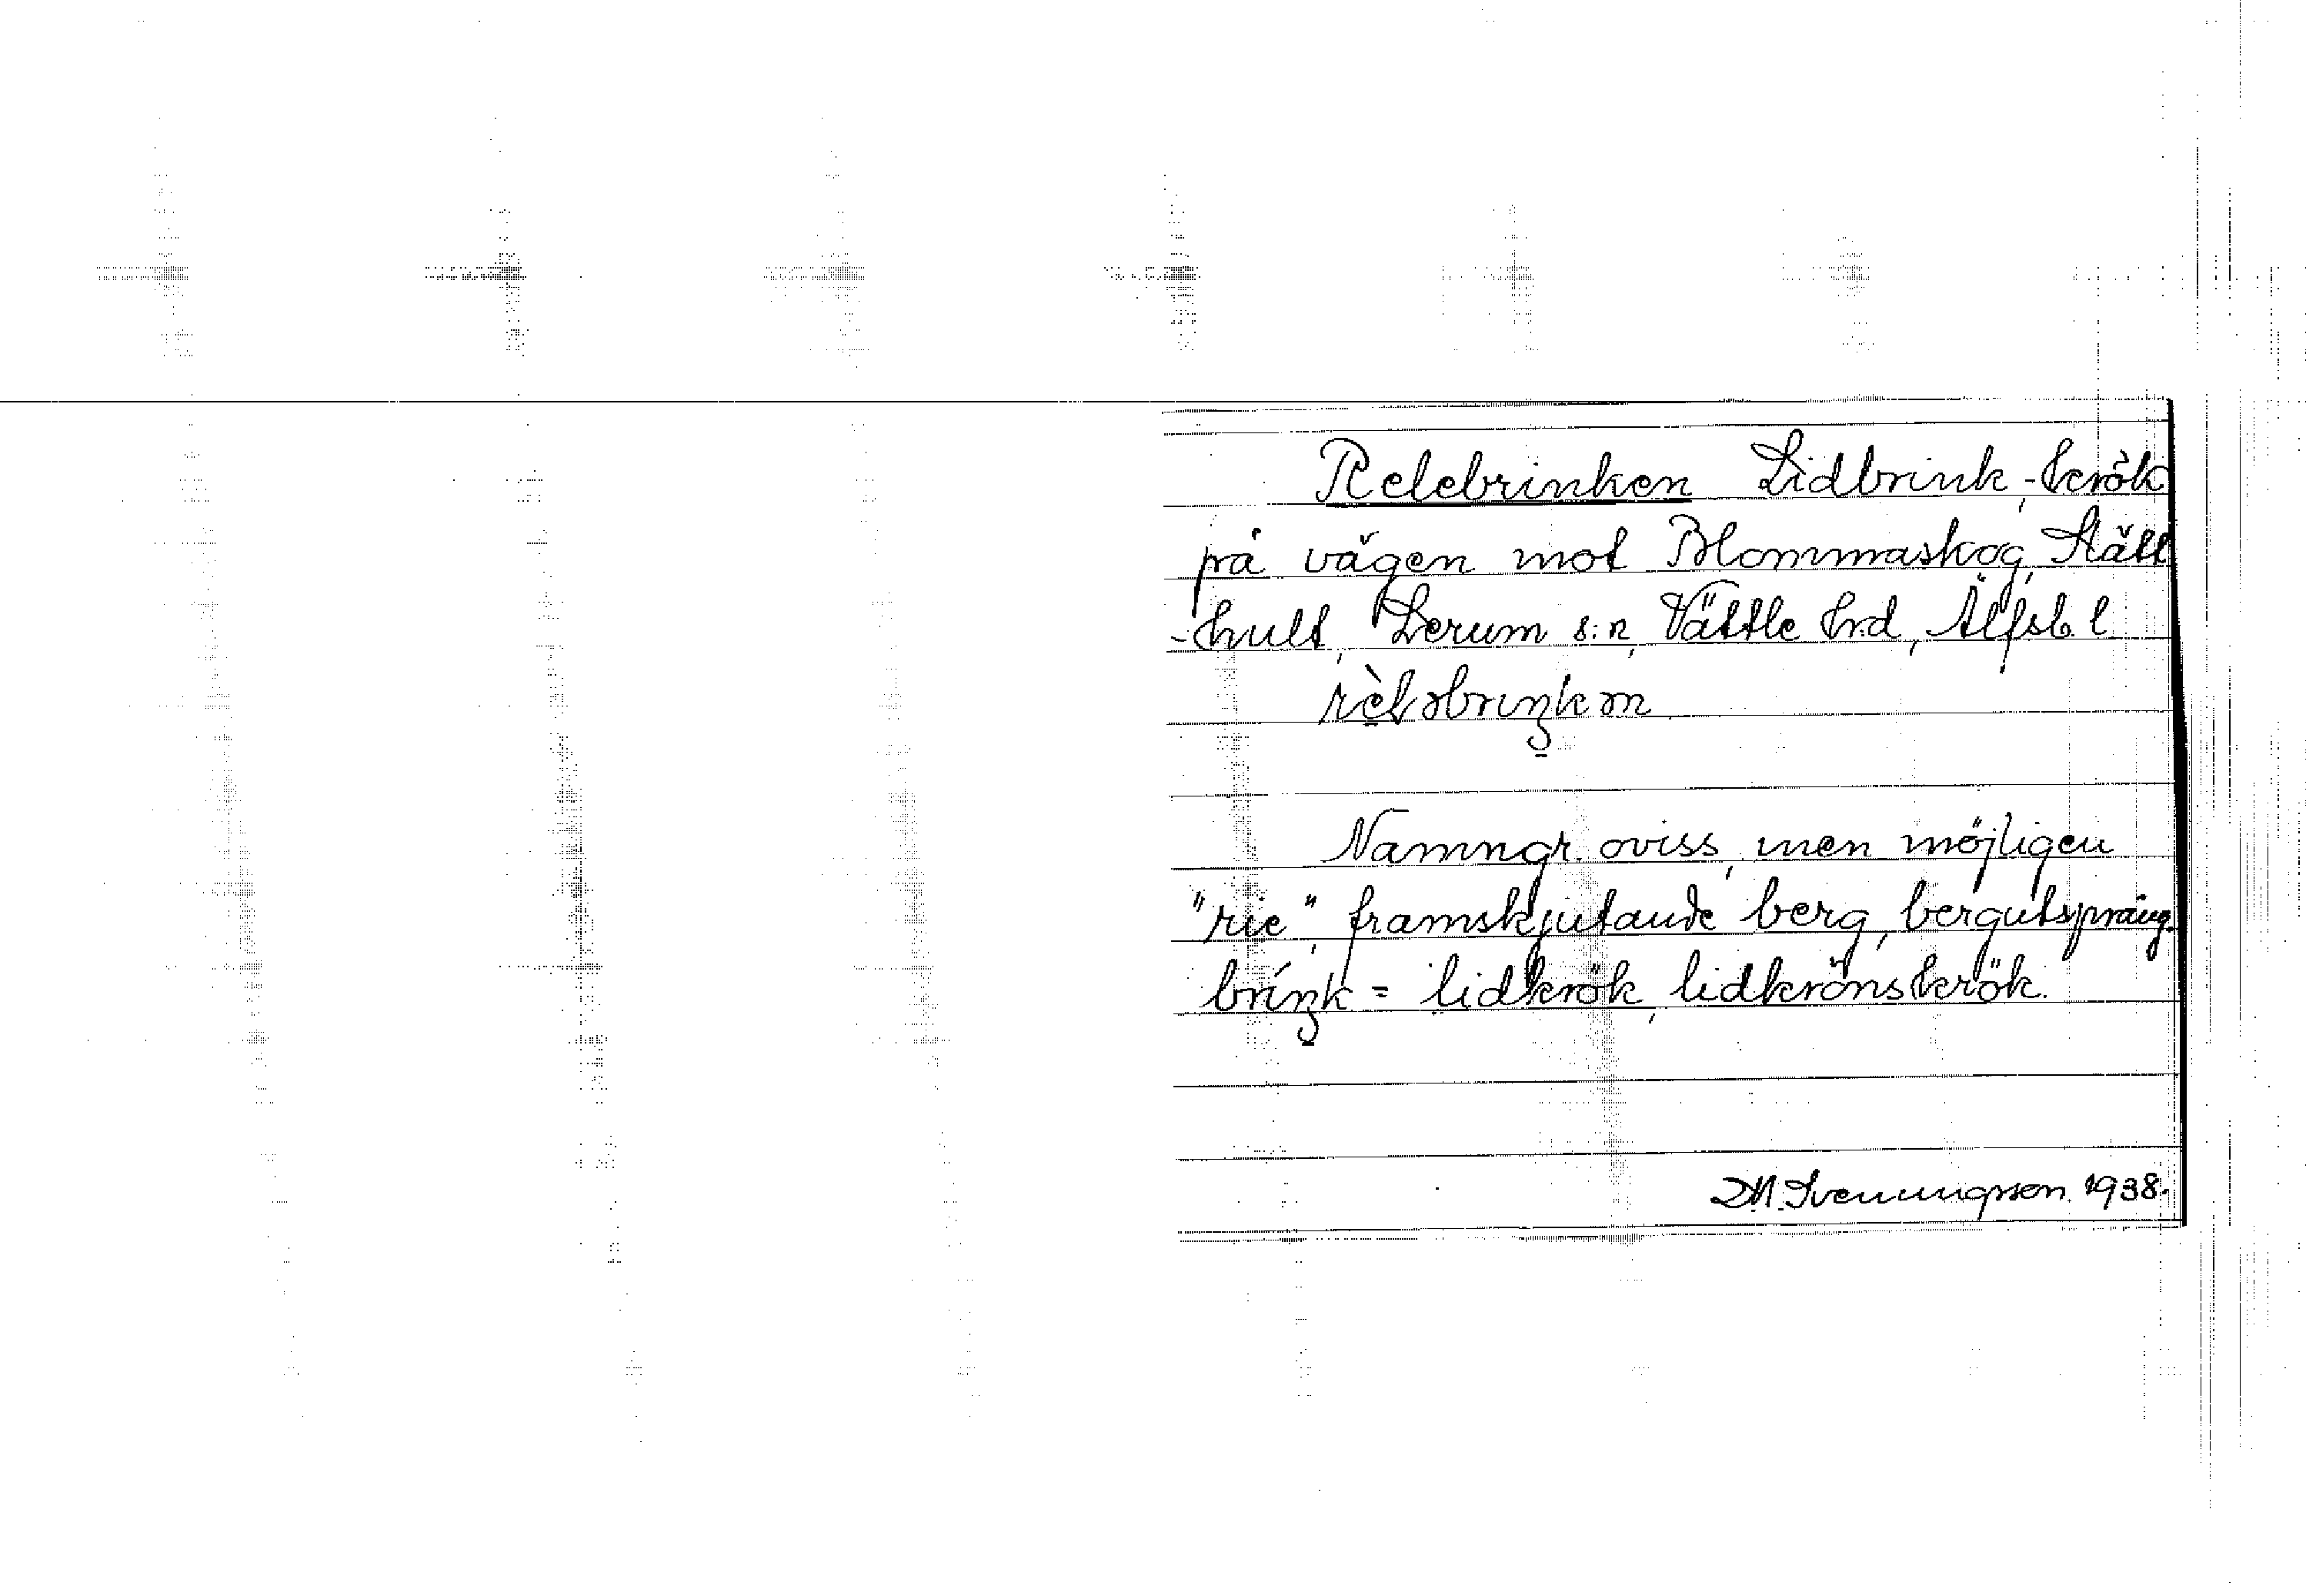 Relebrinken Lidbrink, -krök
på vägen mot Blommaskog, Stätt
-hult, Lerum s:n, Vättle hrd, Älfsb. l
Namngr. oviss, men möjligen
"rie", framskjutande berg, bergutsprång.
= lidkrök, lidkrönskrök.
D.M. Svenungsson. 1938.